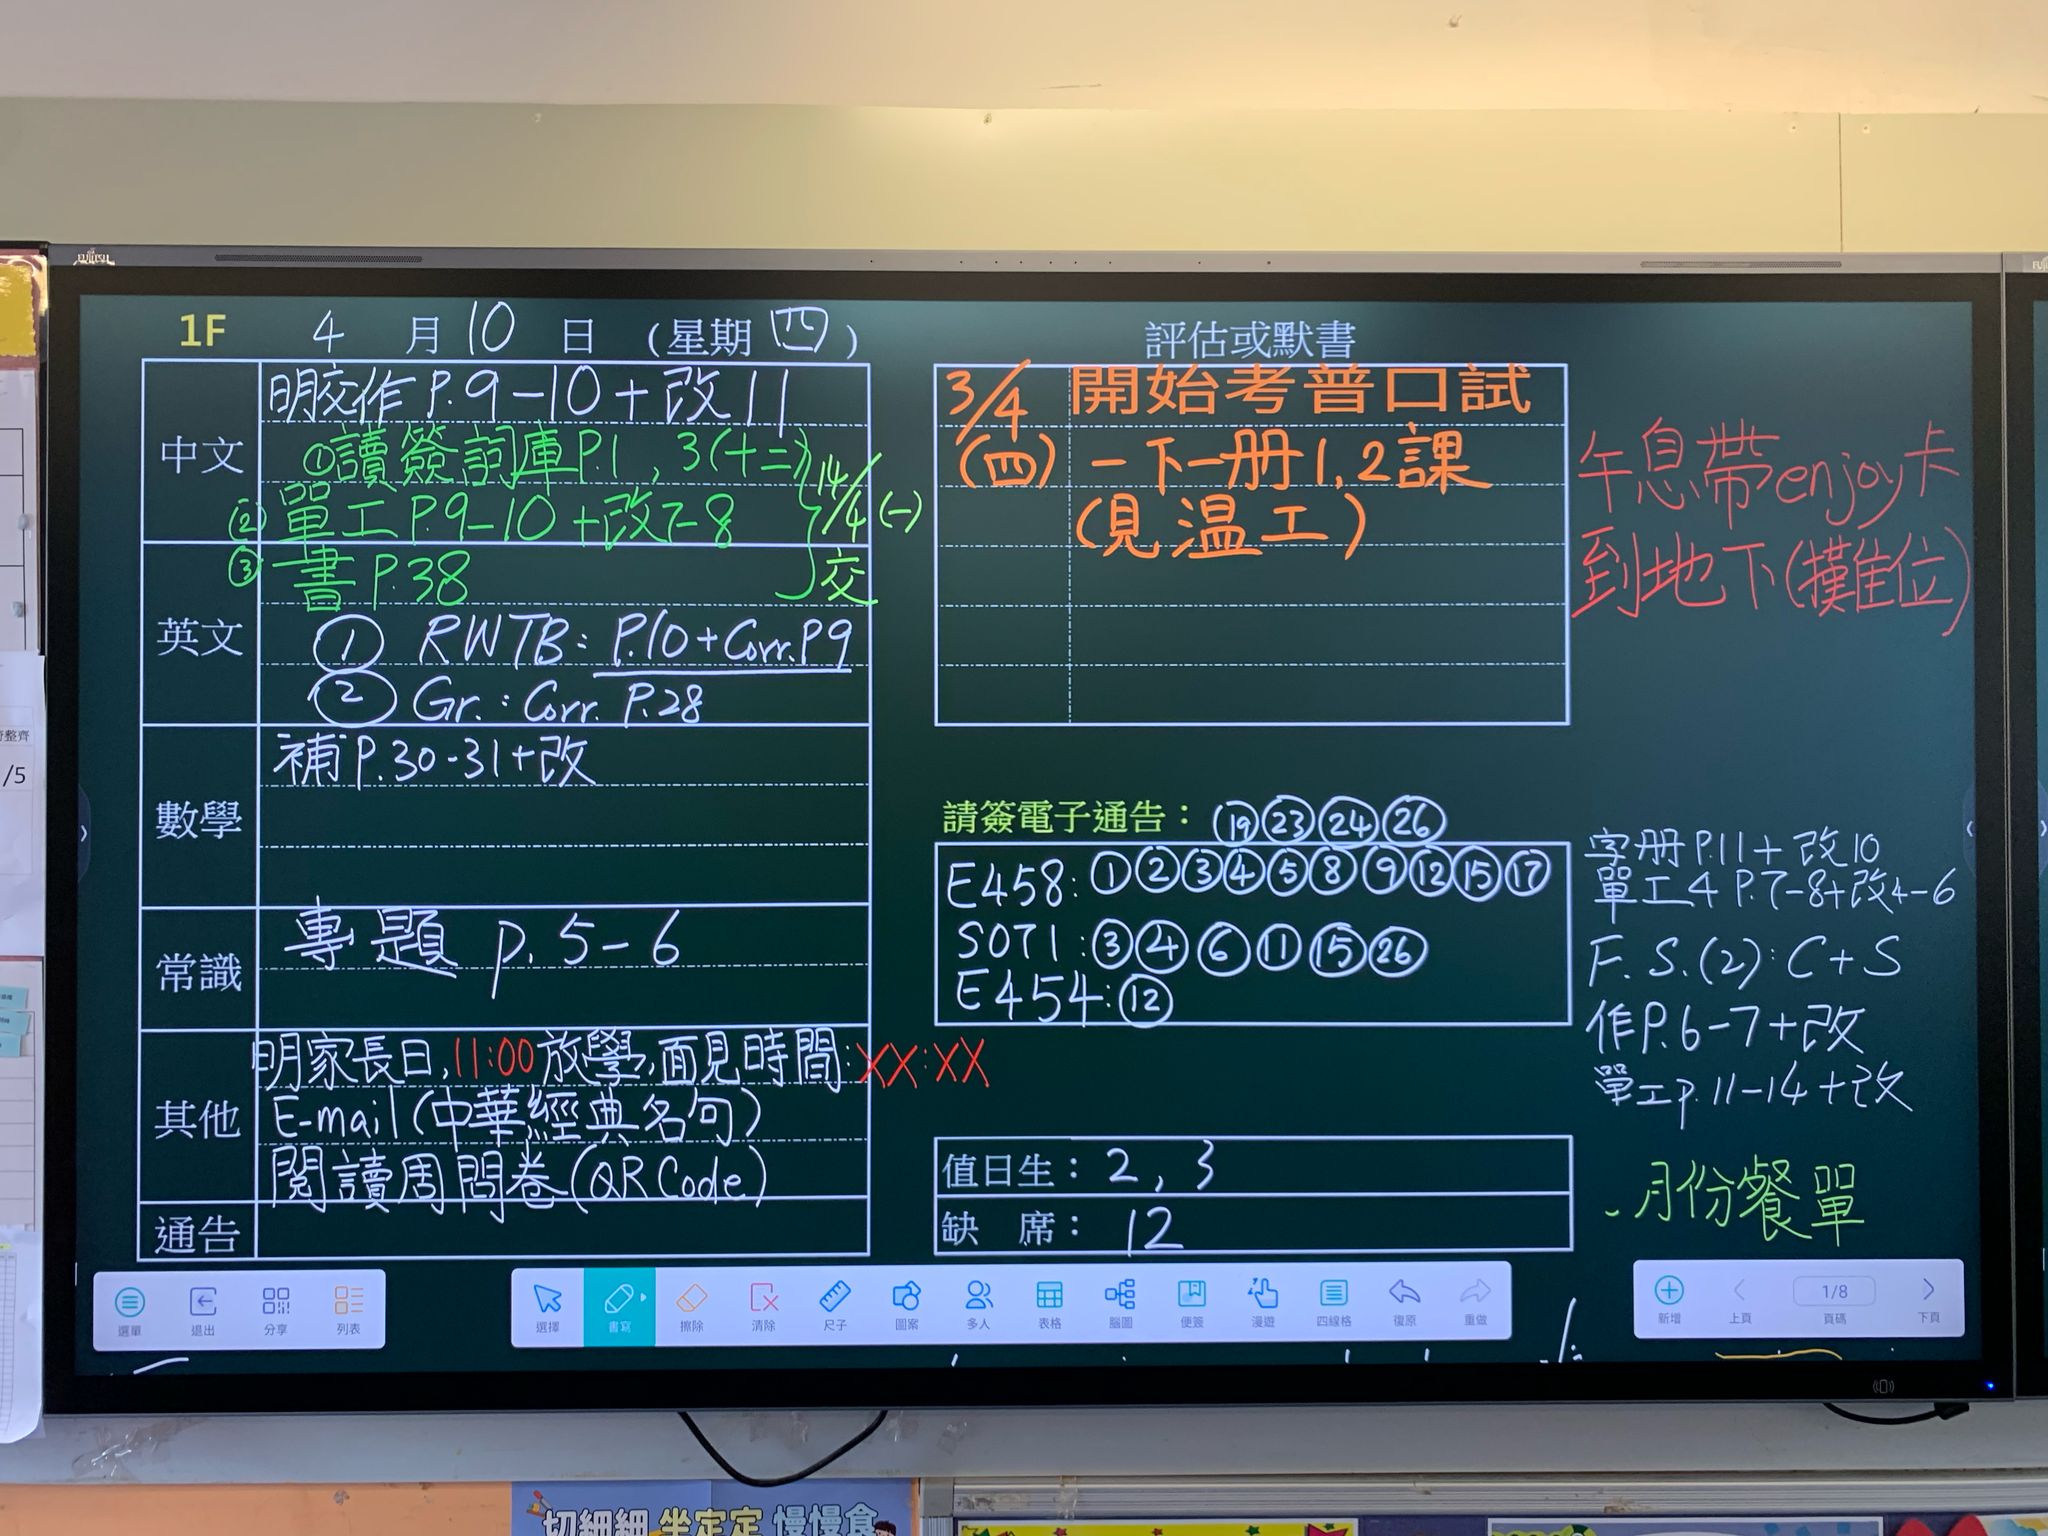 FUJITSU
1F 4 月 10 日 (星期 四)
中文
明交作 P.9-10+改11
①讀簽詞庫P.1, 3(十二)
②單工P.9-10+改7-8
③書 P.38
14/4(一)
交
英文
① RWTB: P.10+Corr.P9
② Gr.: Corr. P.28
數學
補P.30-31+改
常識
專題 p.5-6
其他
明家長日,11:00放學,面見時間:XX:XX
E-mail(中華經典名句)
閱讀周問卷(QR Code)
通告
評估或默書
3/4 開始考普口試
(四) 一下一册1,2課
(見溫工)
午息帶enjoy卡
到地下(攤位)
請簽電子通告: ⑲㉓㉔㉖
E458: ①②③④⑤⑧⑨⑫⑮⑰
SOT1: ③④⑥⑪⑮㉖
E454: ⑫
值日生: 2, 3
缺 席: 12
字册P.11+改10
單工4 P.7-8+改4-6
F.S.(2): C+S
作P.6-7+改
單工p.11-14+改
月份餐單
選單 退出 分享 列表
選擇 書寫 擦除 清除 尺子 圖案 多人 表格 腦圖 便簽 漫遊 四線格 復原 重做
新增 上頁 1/8 頁碼 下頁
整齊
/5
切細細 坐定定 慢慢食